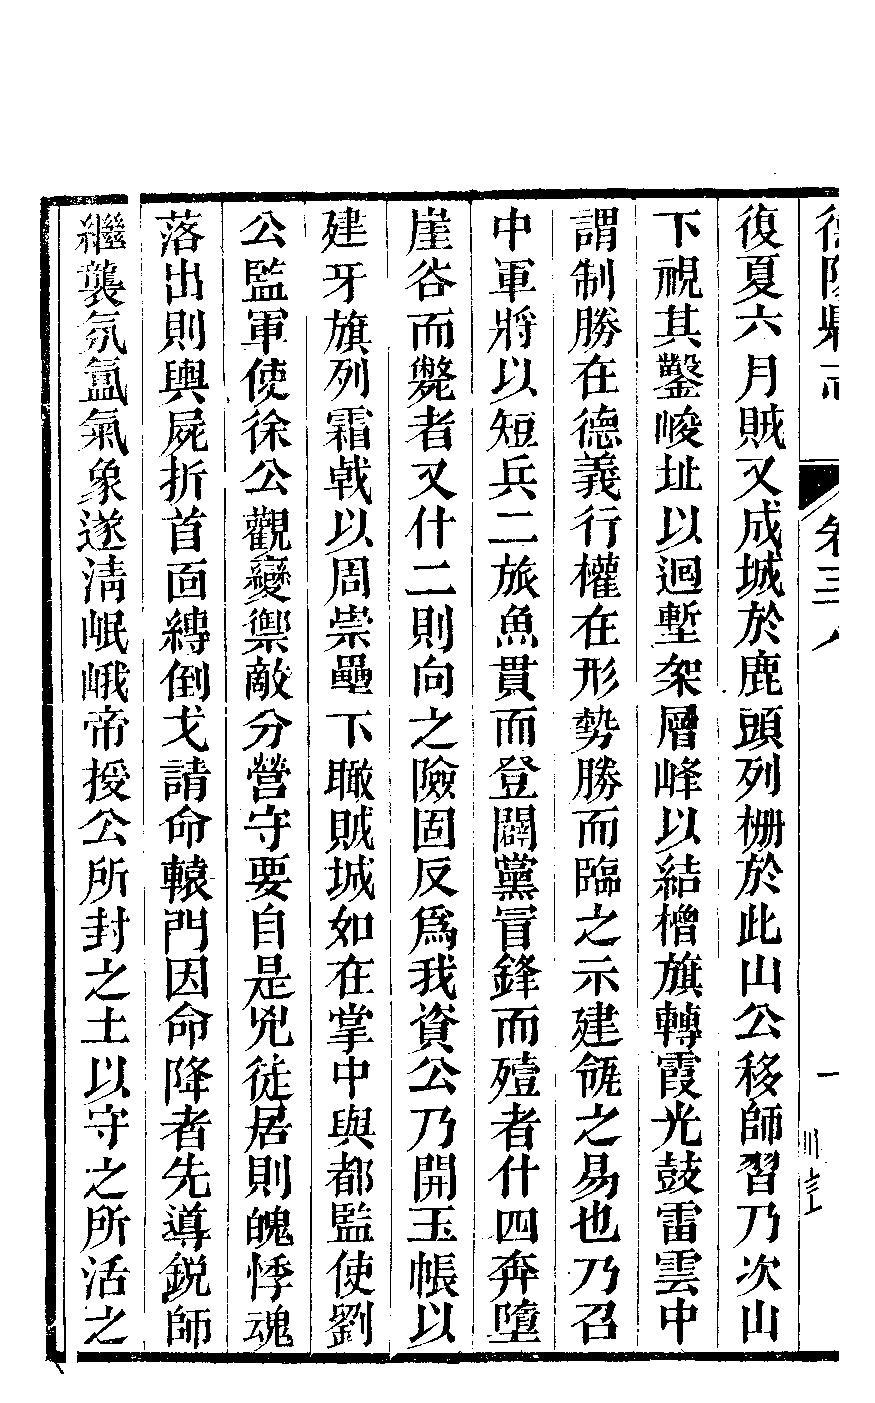 復夏六月賊又成城於鹿頭列柵於此山公移師習乃次山
下視其鑿峻址以迴塹架層峰以結櫓旗轉霞光鼓雷雲中
謂制勝在德義行權在形勢勝而臨之示建瓴之易也乃召
中軍將以短兵二旅魚貫而登闢黨冒鋒而殪者什四奔墮
崖谷而斃者又什二則向之險固反爲我資公乃開玉帳以
建牙旗列霜戟以周崇壘下瞰賊城如在掌中與都監使劉
公監軍使徐公觀變禦敵分營守要自是兇徒居則魄悸魂
落出則輿屍折首面縛倒戈請命轅門因命降者先導銳師
繼襲氛氳氣象遂淸岷峨帝授公所封之土以守之所活之